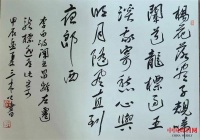 楊花落尽子規啼
闻道龍標過五
溪我寄愁心與
明月随風直到
夜郎西
李白诗闻王昌龄左遷
龍標遥有此寄
甲辰